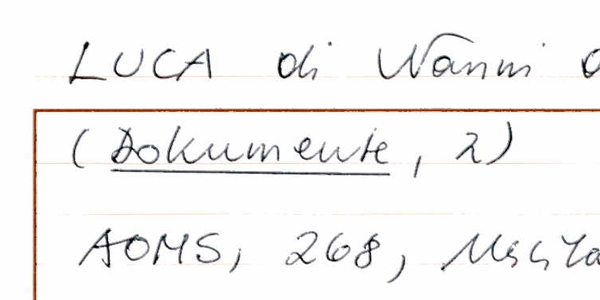 LUCA di Nanni
(Dokumente, 2)
AOMS, 268,